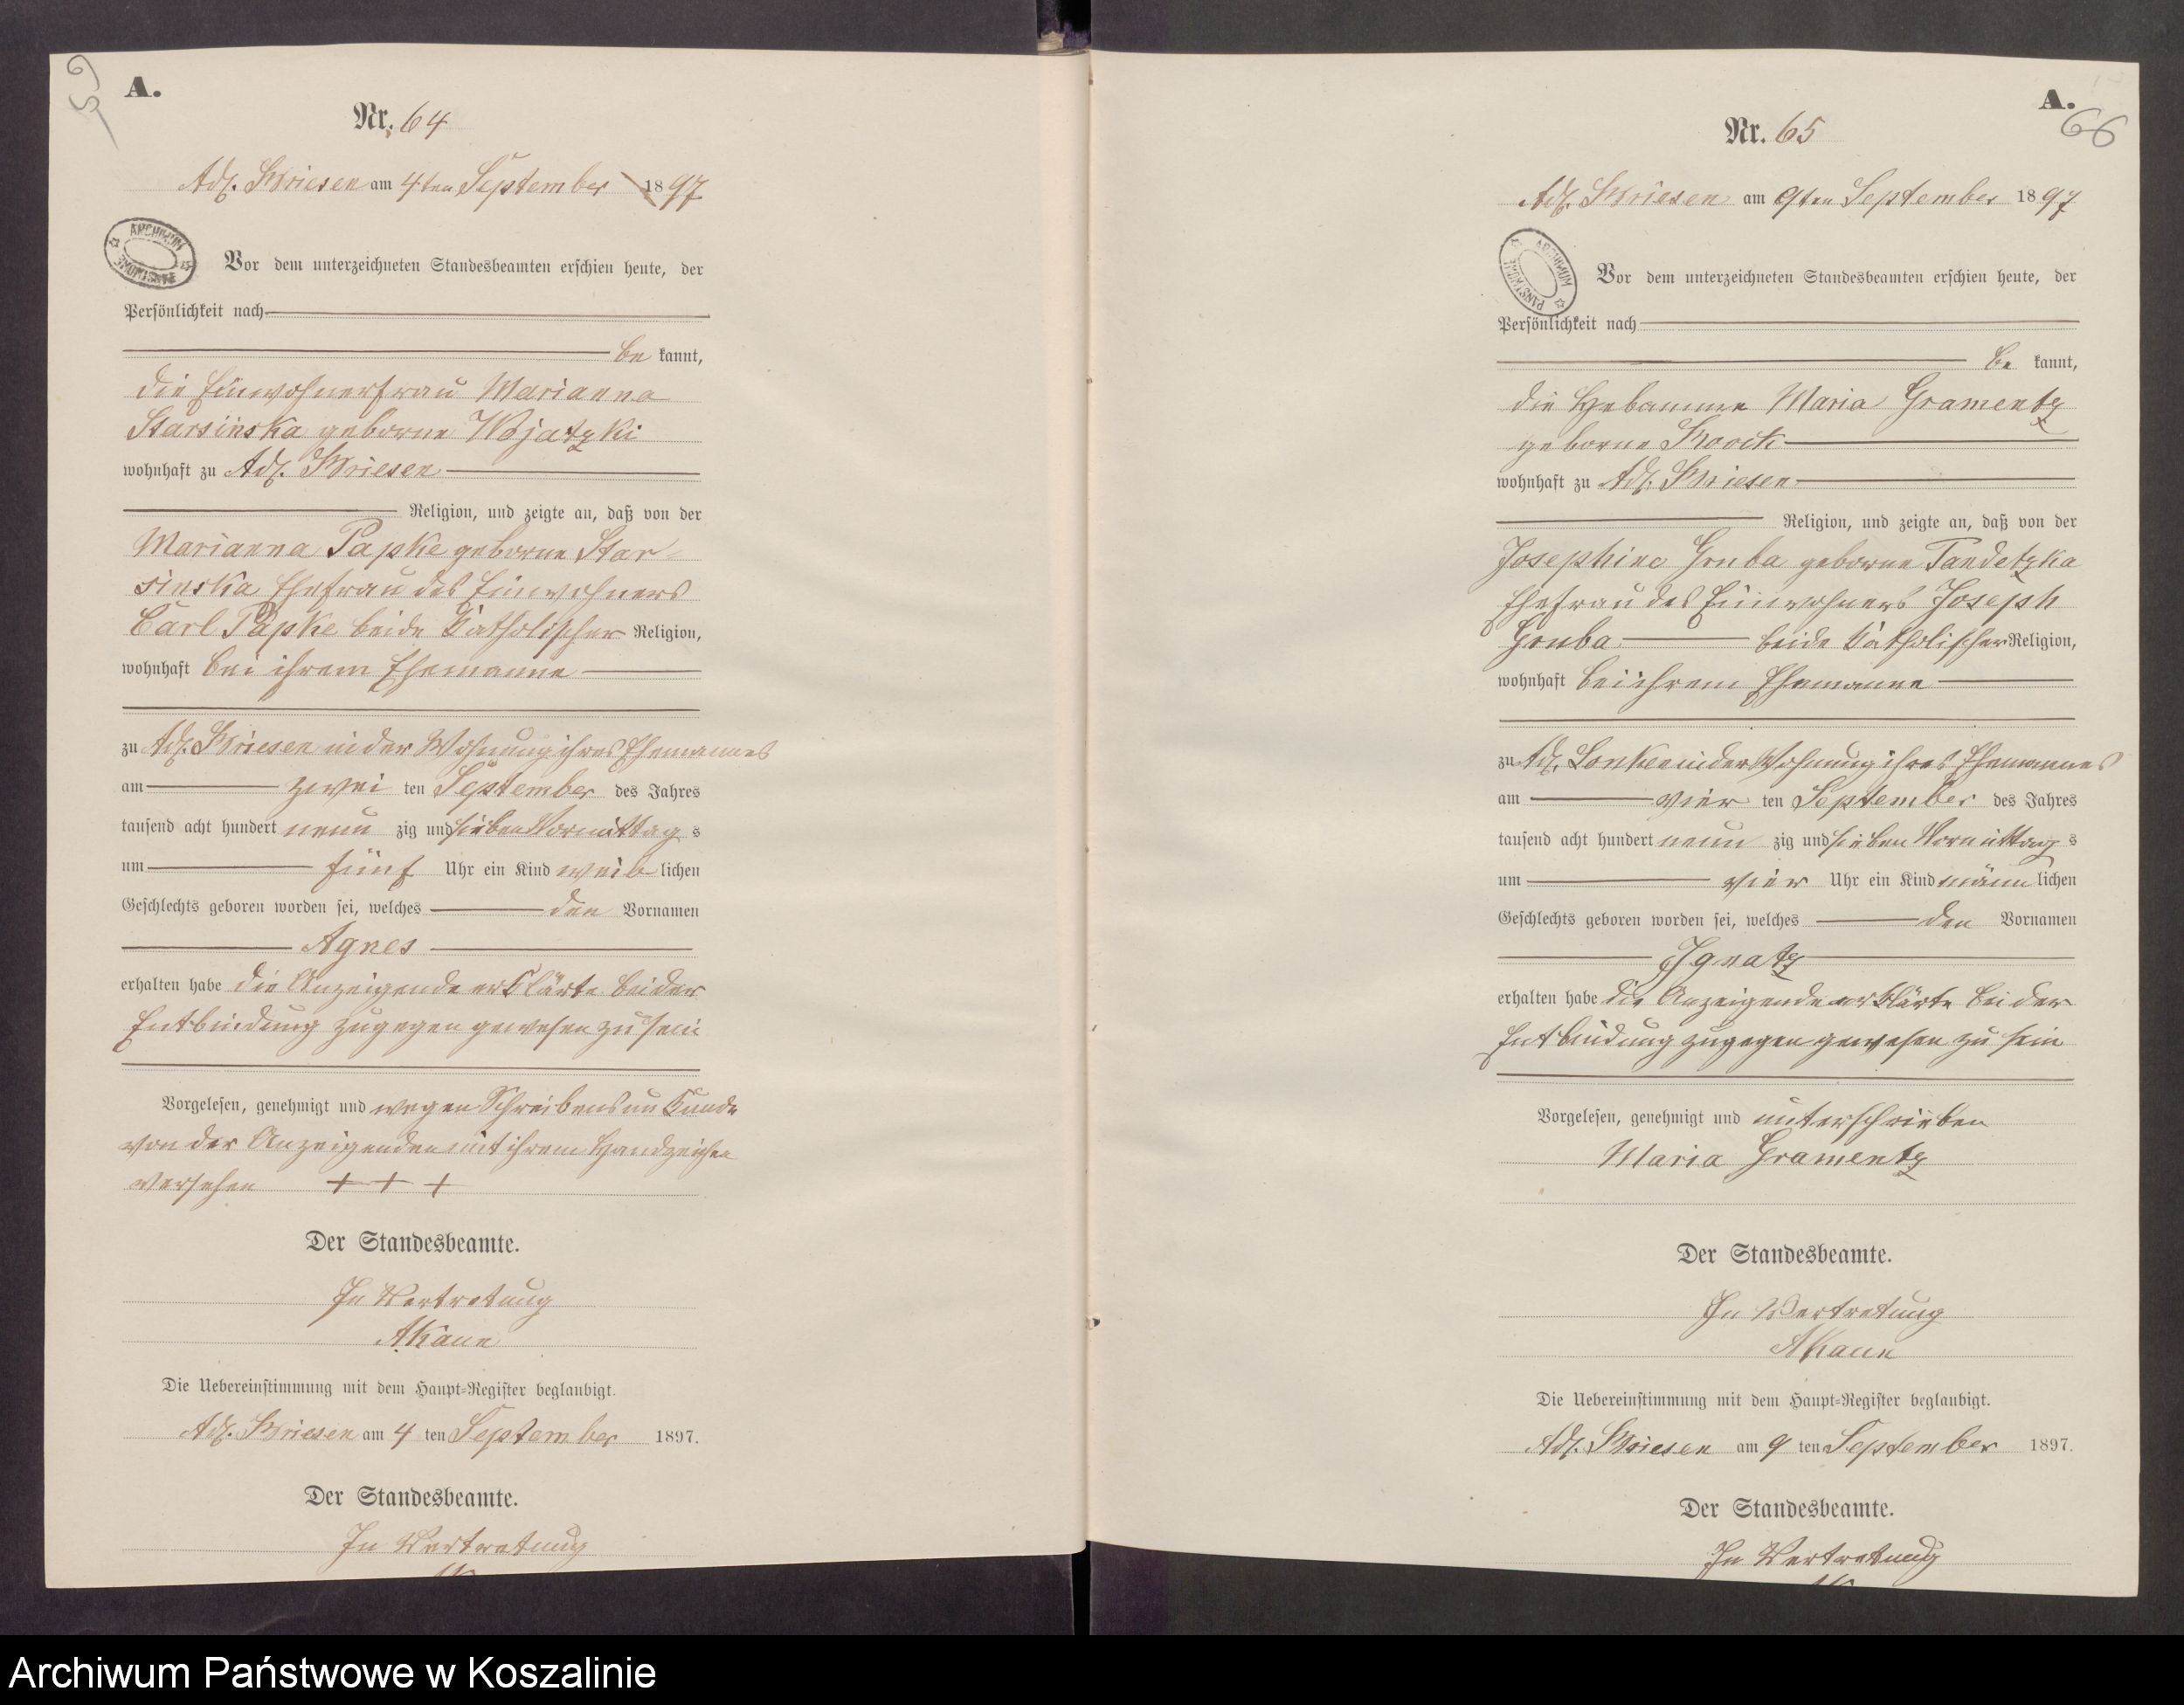 65
A.
Nr. 64
Adl. Briesen am 4ten September 1897
ARCHIWUM PAŃSTWOWE
Vor dem unterzeichneten Standesbeamten erschien heute, der
Persönlichkeit nach
be kannt,
die Einwohnerfrau Marianna
Starsinska geborne Wojatzki
wohnhaft zu Adl. Briesen
Religion, und zeigte an, daß von der
Marianna Papke geborne Star-
sinska Ehefrau des Einwohners
Carl Papke beide katholischer Religion,
wohnhaft bei ihrem Ehemanne
zu Adl. Briesen in der Wohnung ihres Ehemannes
am zwei ten September des Jahres
tausend acht hundert neun zig und sieben Vormittag s
um fünf Uhr ein Kind weib lichen
Geschlechts geboren worden sei, welches den Vornamen
Agnes
erhalten habe die Anzeigende erklärte bei der
Entbindung zugegen gewesen zu sein
Vorgelesen, genehmigt und wegen Schreibensunkunde
von der Anzeigenden mit ihrem Handzeichen
versehen + + +
Der Standesbeamte.
In Vertretung
AKaun
Die Uebereinstimmung mit dem Haupt-Register beglaubigt.
Adl. Briesen am 4 ten September 1897.
Der Standesbeamte.
In Vertretung
A.
66
Nr. 65
Adl. Briesen am 9ten September 1897
ARCHIWUM PAŃSTWOWE
Vor dem unterzeichneten Standesbeamten erschien heute, der
Persönlichkeit nach
be kannt,
die Hebamme Maria Gramentz
geborne Brock
wohnhaft zu Adl. Briesen
Religion, und zeigte an, daß von der
Josephine Gruba geborne Tandetzka
Ehefrau des Einwohners Joseph
Gruba beide katholischer Religion,
wohnhaft bei ihrem Ehemanne
zu Adl. Lonken in der Wohnung ihres Ehemannes
am vier ten September des Jahres
tausend acht hundert neun zig und sieben Vormittag s
um vier Uhr ein Kind männ lichen
Geschlechts geboren worden sei, welches den Vornamen
Ignatz
erhalten habe die Anzeigende erklärte bei der
Entbindung zugegen gewesen zu sein
Vorgelesen, genehmigt und unterschrieben
Maria Gramentz
Der Standesbeamte.
In Vertretung
AKaun
Die Uebereinstimmung mit dem Haupt-Register beglaubigt.
Adl. Briesen am 9 ten September 1897.
Der Standesbeamte.
In Vertretung
Archiwum Państwowe w Koszalinie